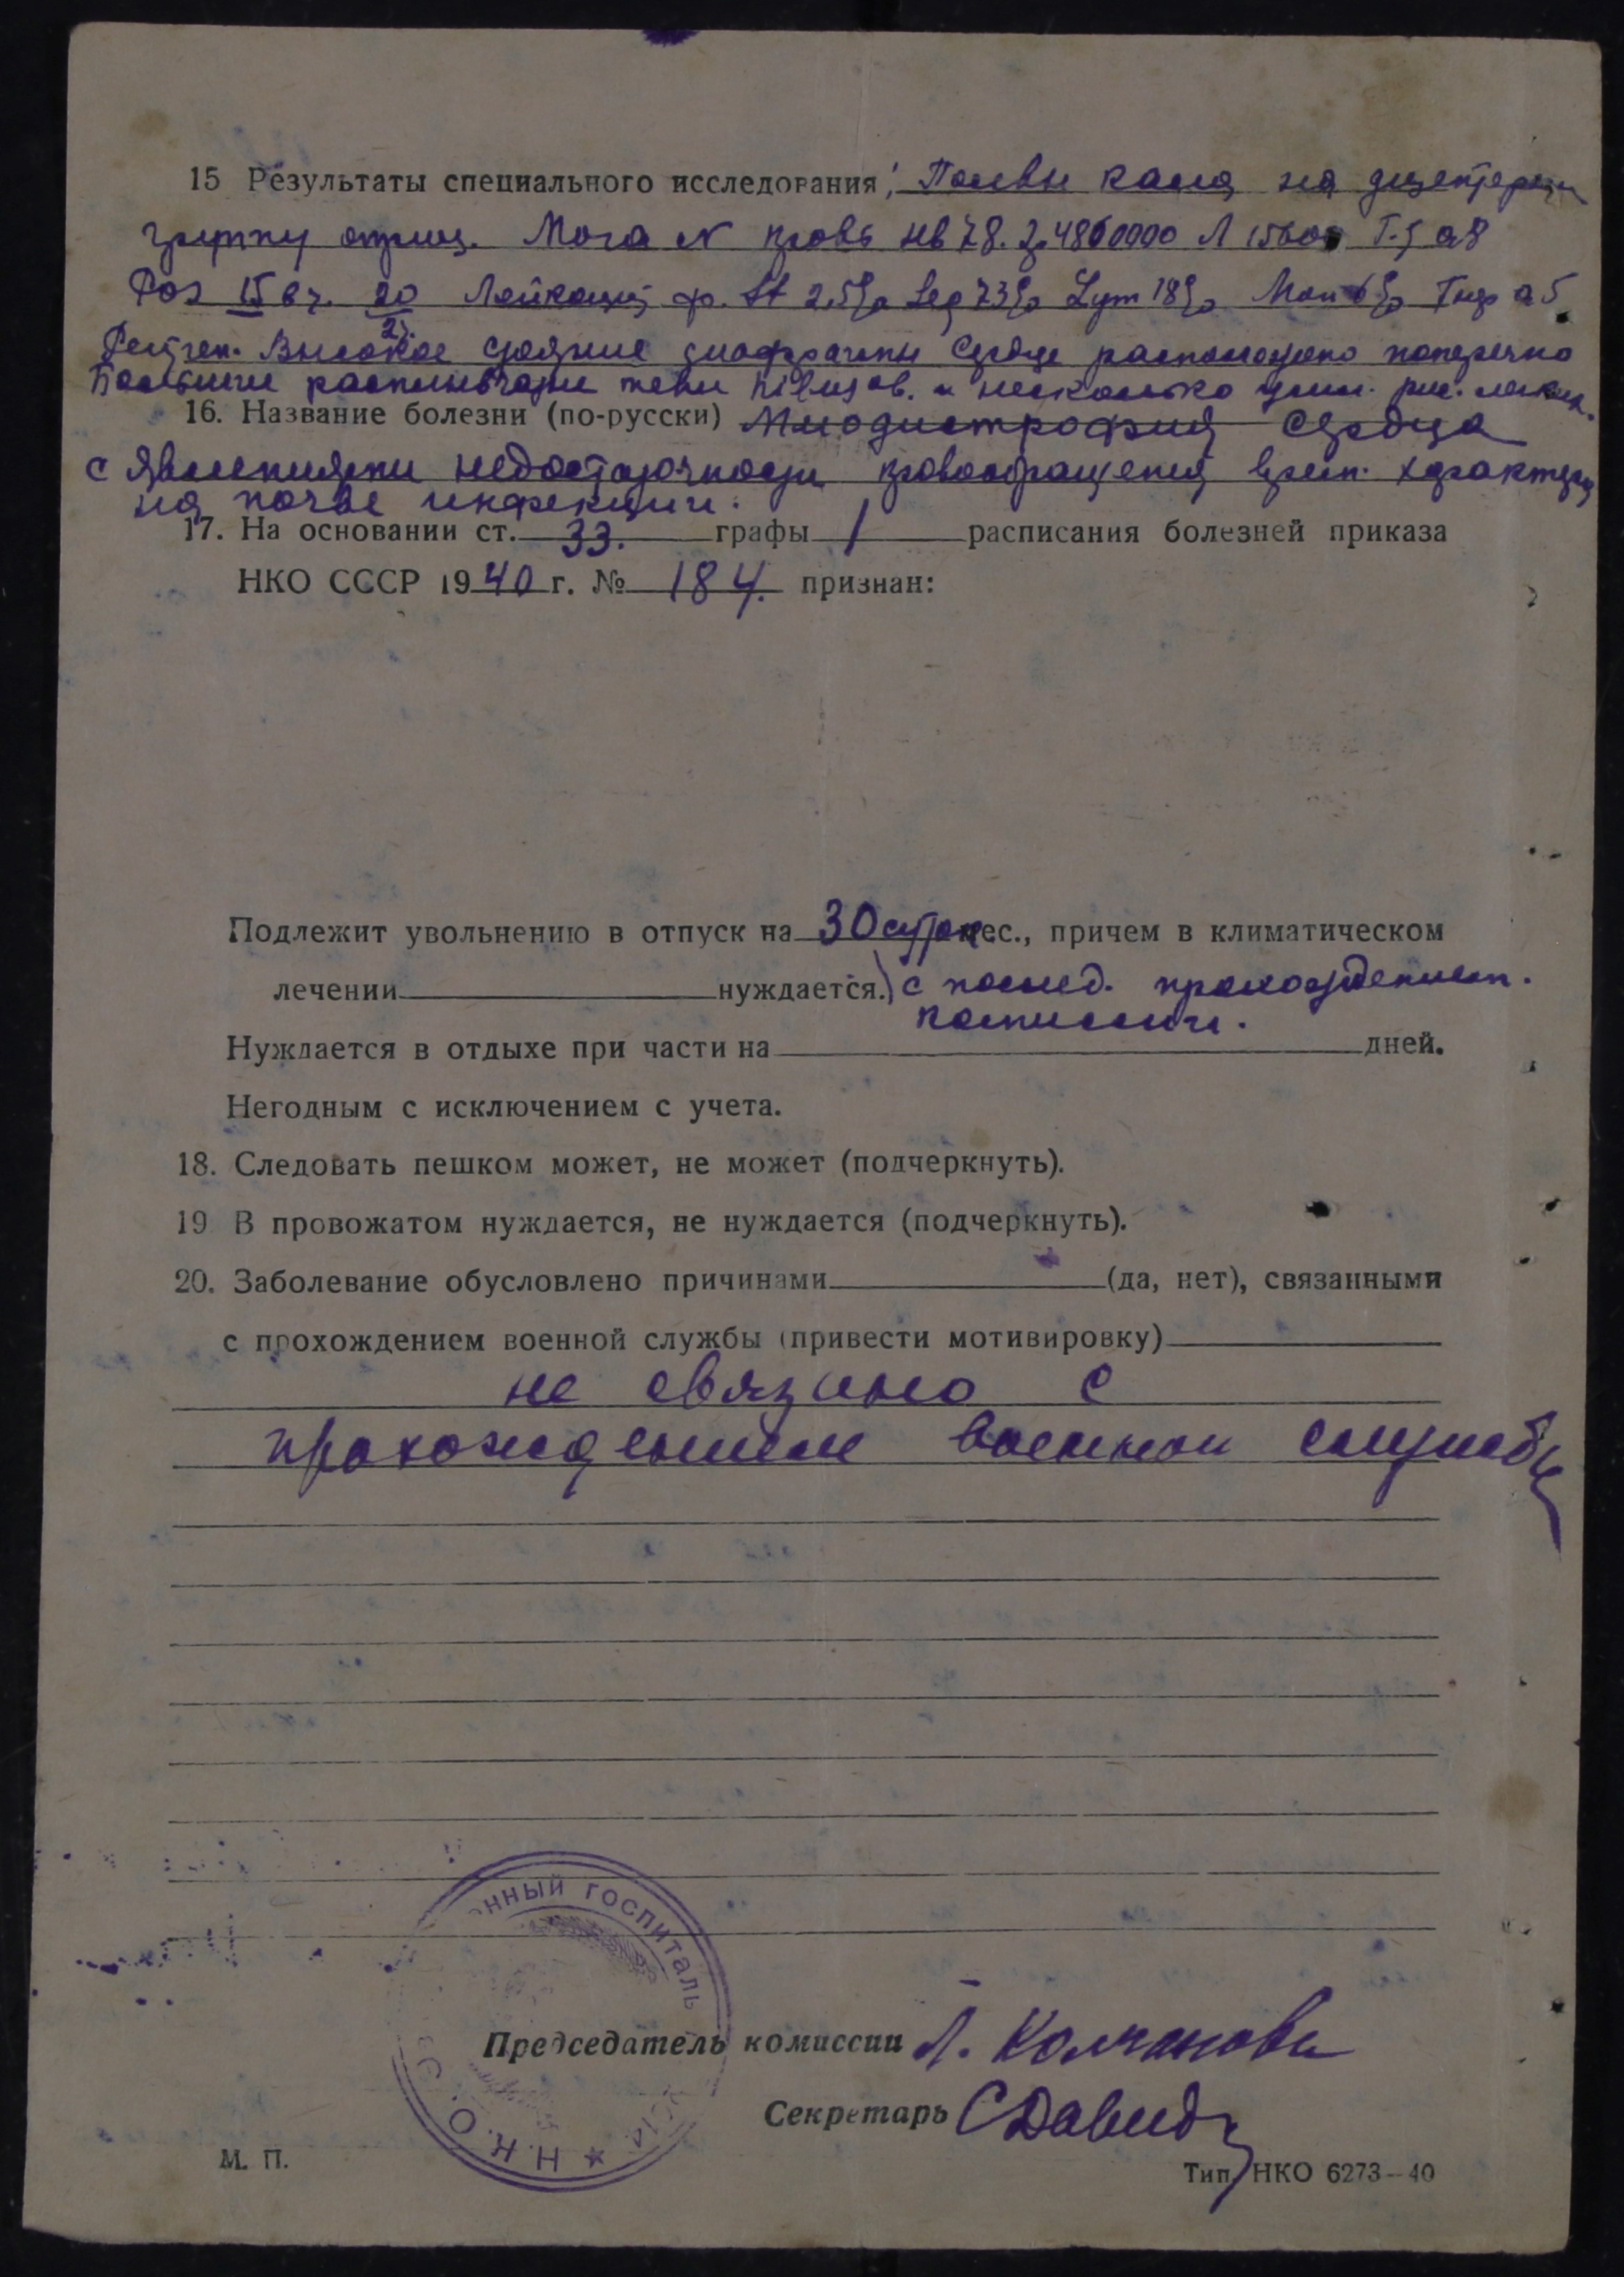 15 Результаты специального исследования: Посевы кала на дизентерийн
группу отриц. Моча N кровь Hb 78. Э. 4860000 Л 15600
Роэ 15 в ч. 20 Лейкоцит. ф. St 2,5% Seg 73% Lym 18% Mon 6%
25.
Рентген. Высокое стояние диафрагмы Сердце расположено поперечно
Большие расплывчатые тени hilusов. и несколько усил. рис. легких.
16. Название болезни (по-русски) Миодистрофия Сердца
с явлениями недостаточности кровообращения врем. характера
на почве инфекции.
17. На основании ст. 33. графы 1 расписания болезней приказа
НКО СССР 1940 г. № 184. признан:
Подлежит увольнению в отпуск на 30 суток мес., причем в климатическом
лечении нуждается.) с послед. прохождением.
комиссии.
Нуждается в отдыхе при части на дней.
Негодным с исключением с учета.
18. Следовать пешком может, не может (подчеркнуть).
19 В провожатом нуждается, не нуждается (подчеркнуть).
20. Заболевание обусловлено причинами (да, нет), связанными
с прохождением военной службы (привести мотивировку)
не связано с
прохождением военной службы
нный госпиталь
Н.К.О.С
Председатель комиссии Л. Колчанова
Секретарь СДавид
М. П.
Тип. НКО 6273—40